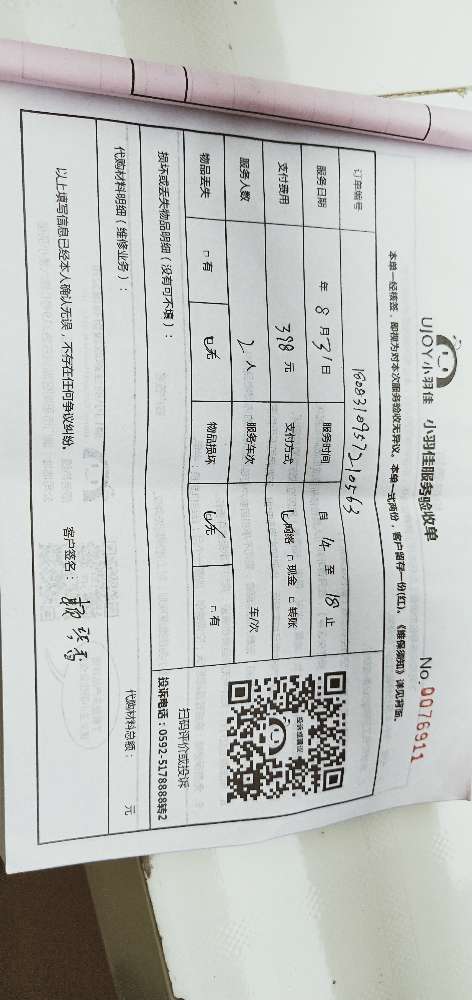 UJOY小羽佳 小羽佳服务验收单 No.0076911
本单一经核签，即视为对本次服务验收无异议。本单一式两份，客户留存一份(红)。《维保须知》详见背面。
订单编号 1808310957210563
服务日期 年 8 月 31 日 服务时间 自 14 至 18 止
支付费用 398 元 支付方式 ☑网络 □现金 □转账
服务人数 2 人 服务车次 车/次
物品丢失 □有 ☑无 物品损坏 ☑无 □有
投诉或建议
扫码评价或投诉
投诉电话：0592-5178888转2
损坏或丢失物品明细（没有可不填）：
代购材料明细（维修业务）： 代购材料总额： 元
以上填写信息已经本人确认无误，不存在任何争议纠纷。 客户签名：